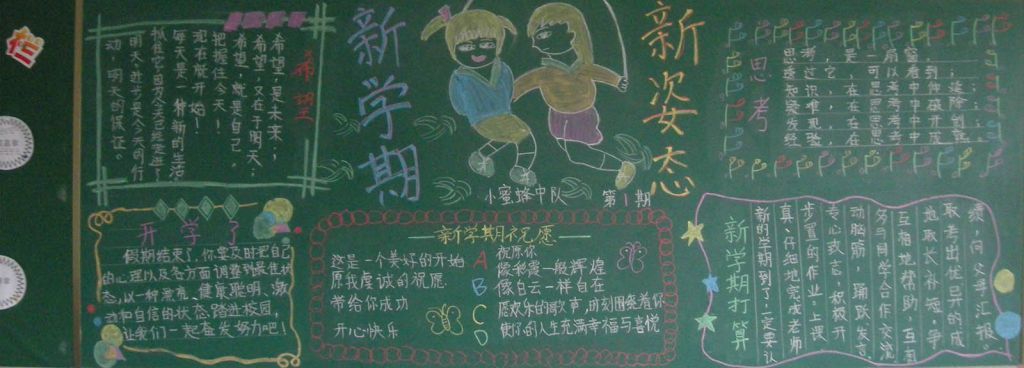 希望
希望，是未来；
希望，又在于明天，
希望，就是自己，
把握住今天！
现在就开始！
每天是一种新的生活
抓住它因为今天已经走进了
明天，进步是今天的行
动，明天的保证。
新学期
新姿态
小蜜蜂中队
第1期
思考
开学了
假期结束了，你要及时把自己
的心理以及各方面调整到最佳状
态，以一种漂亮、健康聪明、激
动和自信的状态踏进校园，
让我们一起奋发努力吧！
新学期祝愿
这是一个美好的开始
愿我虔诚的祝愿
带给你成功
开心快乐
A 祝愿你
像彩霞一般辉煌
B 像白云一样自在
C 愿欢乐的歌声，时刻围绕着你
D 使你的人生充满幸福与喜悦
新学期打算
新的学期到了，一定要认
真、仔细地完成老师
步置的作业，上课
专心致志，积极开
动脑筋，踊跃发言，
多与同学合作交流
互相地帮助，互直
地取长补短，争
取考出优异的成
绩，向父母汇报。